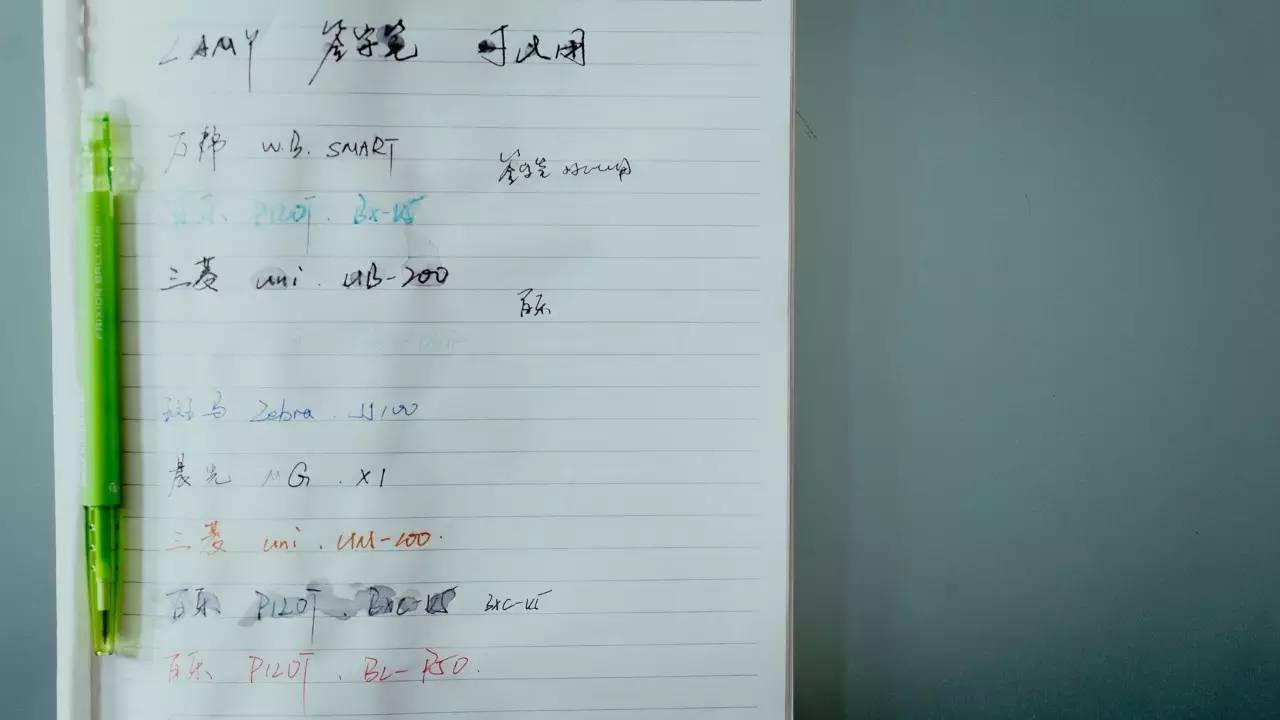 LAMY 签字笔 可以用
万邦 W.B. SMART
签字笔 可以用
百乐 PILOT. BX-V5
三菱 uni. UB-200
百乐
斑马 Zebra. JJ100
晨光 MG. X1
三菱 uni. UM-100.
百乐 PILOT. BXC-V5 BXC-V5
百乐 PILOT. BL-P50.
FRIXION BALL SLIM